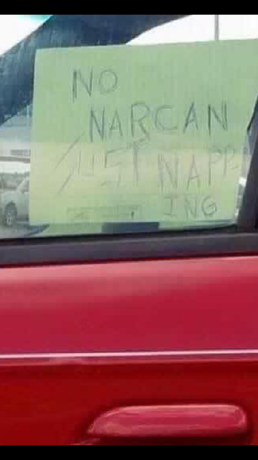 NO
NARCAN
JUST NAPP-
ING